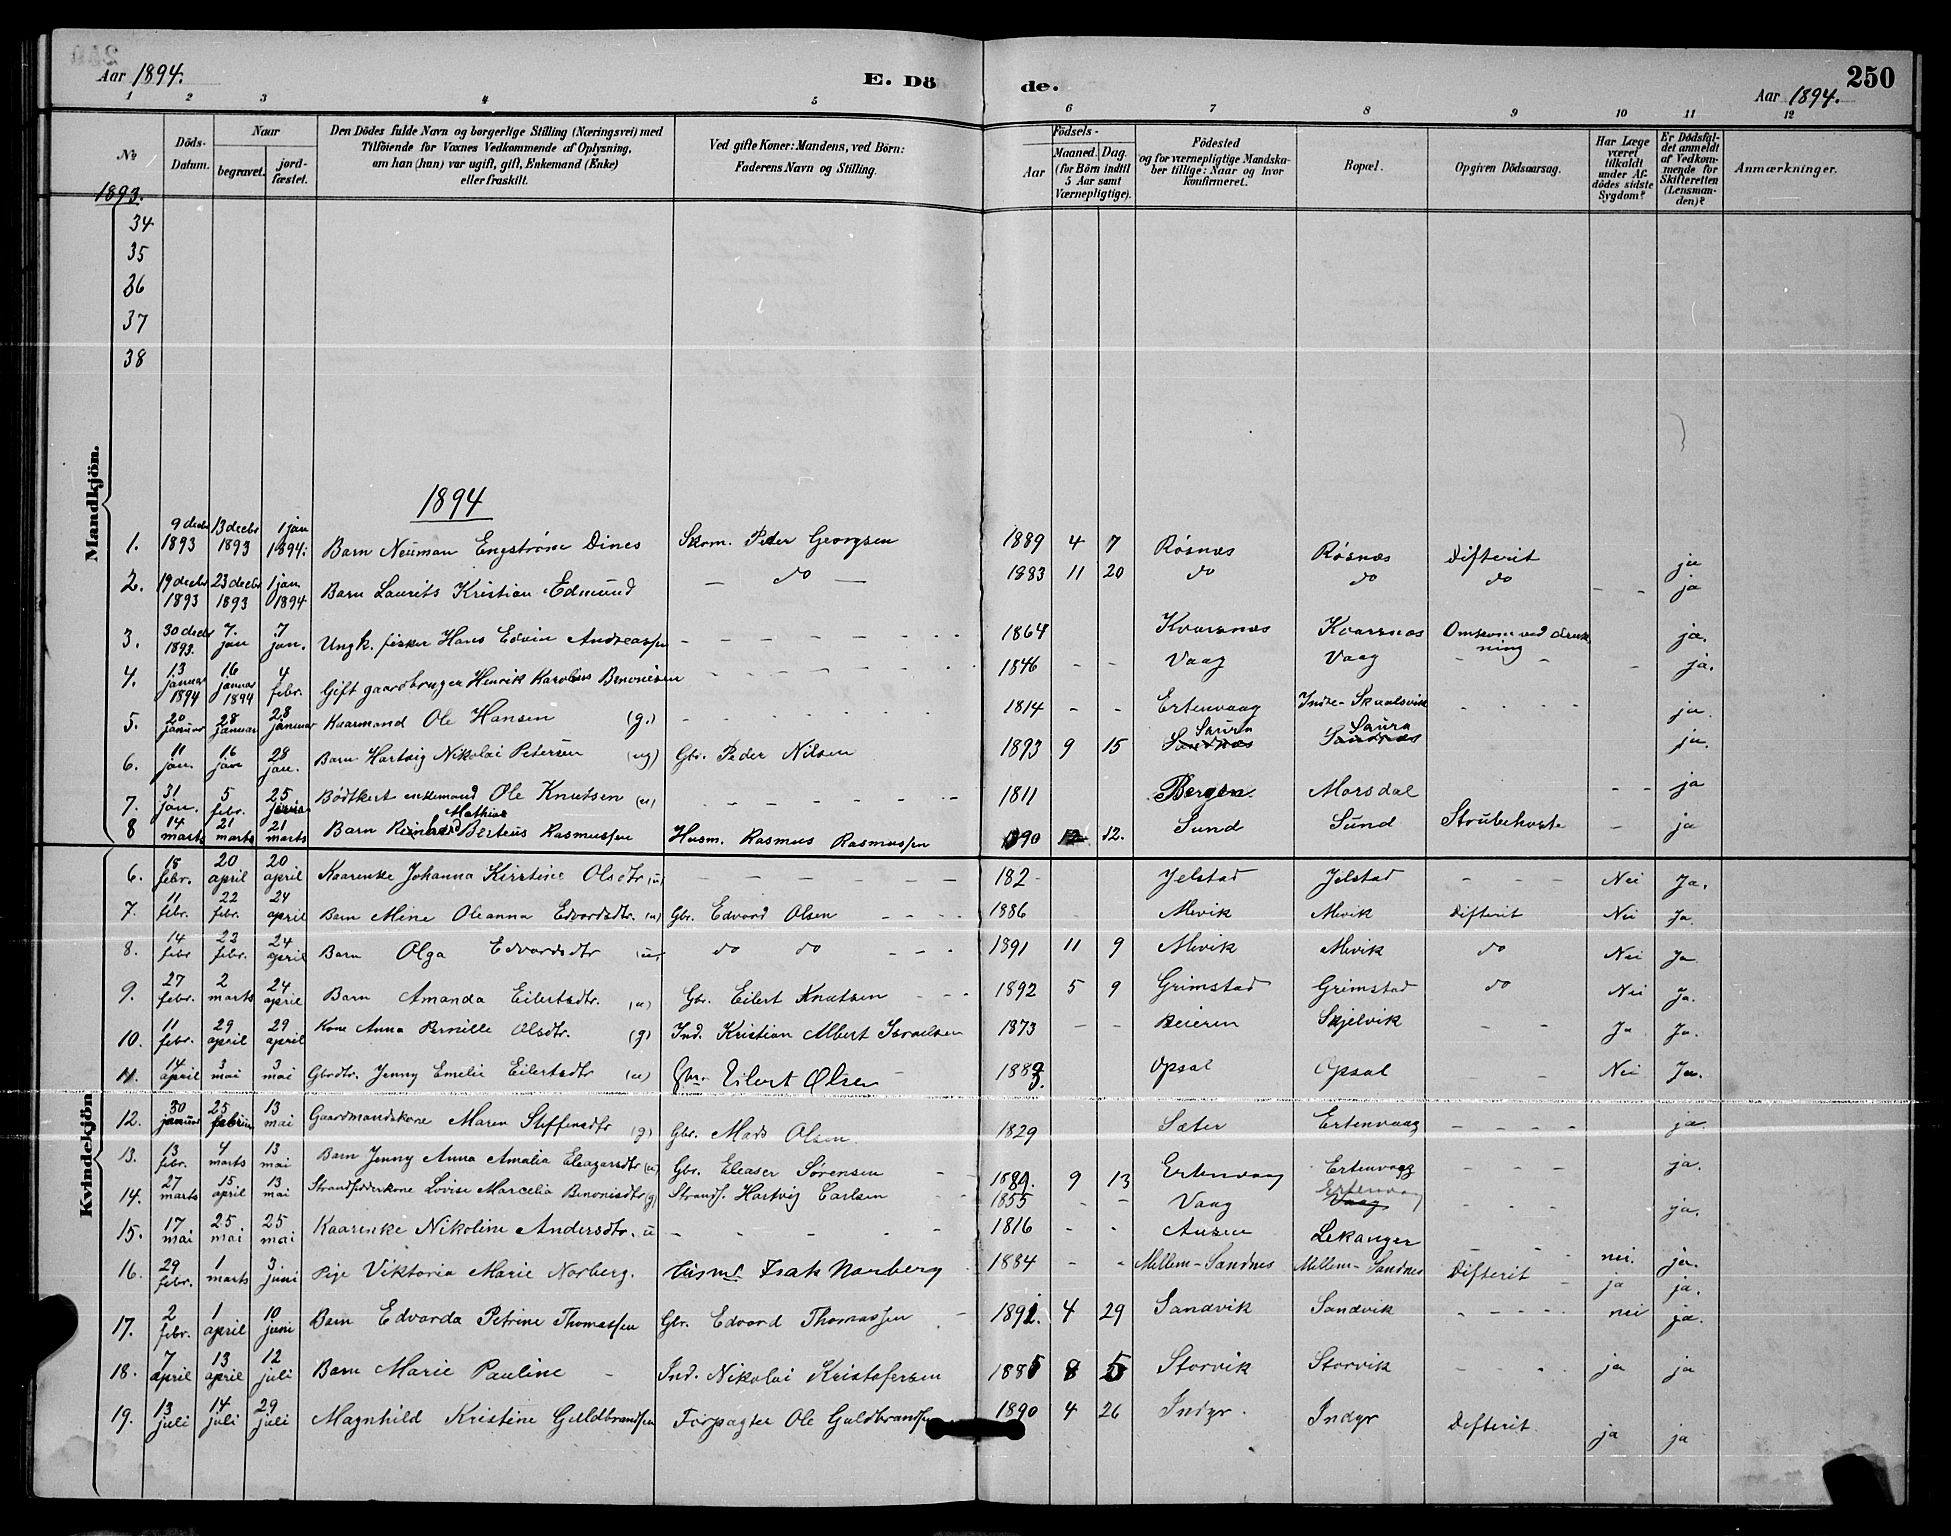 Aar 1894.
E. Döde.
250
Aar 1894.
1 2 3 4 5 6 7 8 9 10 11 12
No
Döds-Datum.
Naar
begravet.
jord-fæstet.
Den Dödes fulde Navn og borgerlige Stilling (Næringsvei) med
Tilföiende for Voxnes Vedkommende af Oplysning,
om han (hun) var ugift, gift, Enkemand (Enke)
eller fraskilt.
Ved gifte Koner: Mandens, ved Börn:
Faderens Navn og Stilling.
Födsels-
Aar
Maaned. Dag.
(for Börn indtil
5 Aar samt
Værnepligtige).
Födested
og for værnepligtige Mandska-
ber tillige: Naar og hvor
Konfirmeret.
Bopæl.
Opgiven Dödsaarsag.
Har Læge
været
tilkaldt
under Af-
dödes sidste
Sygdom?
Er Dödsfal-
det anmeldt
af Vedkom-
mende for
Skifteretten
(Lensman-
den)?
Anmærkninger.
1893.
34
35
36
37
38
Mandkjön.
1894
1. 9 decbr 1893 13 decbr 1893 1 jan 1894. Barn Neuman Engstrøm Dines Skom. Peder Georgsen 1889 4 7 Røsnæs Røsnæs Difterit ja
2. 19 decbr 1893 23 decbr 1893 1 jan 1894 Barn Laurits Kristian Edmund — do — 1883 11 20 do do do - - ja
3. 30 decbr 1893. 7. jan 7 jan. Ungk. fisker Hans Edvin Andreassen 1864 Kvarsnæs Kvarsnæs Omkom ved drukning ja.
4. 13 januar 1894 16 januar 1894 4 febr. Gift gaardbruger Henrik Karolius Benonisen 1846 - - Vaag Vaag - - - ja.
5. 20 januar 28 januar 28 januar Kaarmand Ole Hansen (g.) 1814 - - Ertenvaag Indre-Skaalsvik - - - - ja.
6. 11 jan. 16 jan 28 jan. Barn Hartvig Nikolai Petersen (ug) Gbr. Peder Nilsen 1893 9 15 Saura Sandnæs Saura Sandnæs ja.
7. 31 jan. 5 febr. 25 Bødtkert enkemand Ole Knutsen (u) 1811 Bergen. Morsdal - - ja
8 14 marts 21 marts 21 marts Barn Reinhard Mathias Berteus Rasmussen Husm. Rasmus Rasmussen 1890 12. Sund Sund Strubehoste - ja
Kvindekjön
6. 18 febr. 20 april 20 april Kaarenke Johanna Kirstine Olsdtr (u) 182- Jelstad Jelstad - - - Nei Ja.
7. 11 febr. 22 febr. 24 april Barn Mine Oleanna Edvardsdtr. (u) Gbr. Edvard Olsen 1886 Mevik Mevik Difterit Nei Ja
8. 14 febr 23 febr. 24 april Barn Olga Edvardsdtr (u) do do 1891 11 9 Mevik Mevik do Nei Ja
9. 27 febr. 2 marts 24 april Barn Amanda Eilertsdtr. (u) Gbr. Eilert Knutsen 1892 5 9 Grimstad Grimstad do Nei Ja.
10. 11 febr. 29 april 29 april Kone Anna Pernille Olsdtr. (g) Ind. Kristian Albert Israelsen 1873 - - Beieren Skjelvik - - Ja Ja.
11. 14 april 3 mai 3 mai Gbrdtr. Jenny Emelie Eilertsdtr (u) Gbr. Eilert Olsen 1883. Opsal Opsal Nei Ja.
12. 30 januar 25 februar 13 mai Gaardmandskone Maren Steffensdtr (g) Gbr. Mads Olsen. 1829 Sæter Ertenvaag - - - - ja.
13. 13 febr. 4 marts 13 mai Barn Jenny Anna Amalia Eleazarsdtr (u) Gbr. Eleaser Sørensen 1889. 9 13 Ertenvaag Ertenvaag - - - - ja.
14. 27 marts 15 april 13 mai Strandsidderkone Lovise Marcelia Benonisdtr (g) Strands. Hartvig Carlsen 1855 - - Vaag Ertenvaag Vaag - - - ja.
15. 17 mai 25. mai. 25. mai Kaarenke Nikoline Andersdtr. u 1816 - - Ausen Lekanger - - nei. ja.
16. 29 febr. 1 marts 3. juni Pige Viktoria Marie Norberg. Husmd Isak Norberg 1884 - - Mellem-Sandnes Mellem-Sandnes Difterit - ja ja.
17. 2 febr. 1 april 10 juni Barn Edvarda Petrine Thomassen Gbr. Edvard Thomassen 1891. 4 29 Sandvik Sandvik - - - - nei ja.
18. 7 april 13 april 12 juli Barn Marie Pauline - Ind. Nikolai Kristofersen 1885 8 5 Storvik Storvik - - - ja ja
19. 13 juli 14 juli 29 juli Magnhild Kristine Guldbrandsen Forpagter Ole Guldbrandsen 1890 4 26 Indyr. Indyr Difterit ja ja